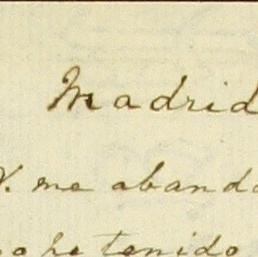 Madrid
V. me abando
o he tenido